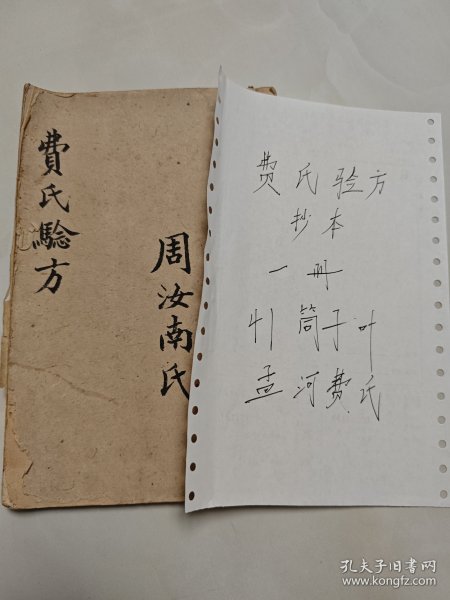 費氏驗方
周汝南氏
费氏验方
抄本
一册
筒子叶
孟河費氏
孔夫子旧书网
www.kongfz.com